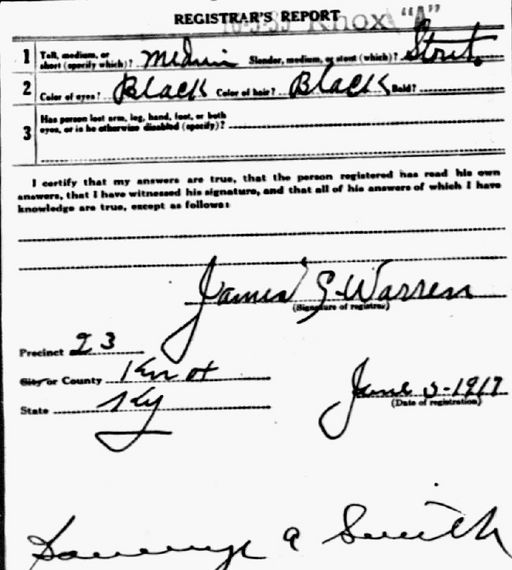 REGISTRAR'S REPORT Knox "A"
1 Tall, medium, or short (specify which)? Medium Slender, medium, or stout (which)? Stout
2 Color of eyes? Black Color of hair? Black Bald?
3 Has person lost arm, leg, hand, foot, or both
eyes, or is he otherwise disabled (specify)?
I certify that my answers are true, that the person registered has read his own
answers, that I have witnessed his signature, and that all of his answers of which I have
knowledge are true, except as follows:
James G Warren
(Signature of registrar)
Precinct 23
City or County Knox
State Ky
June 5-1917
(Date of registration)
A Smith